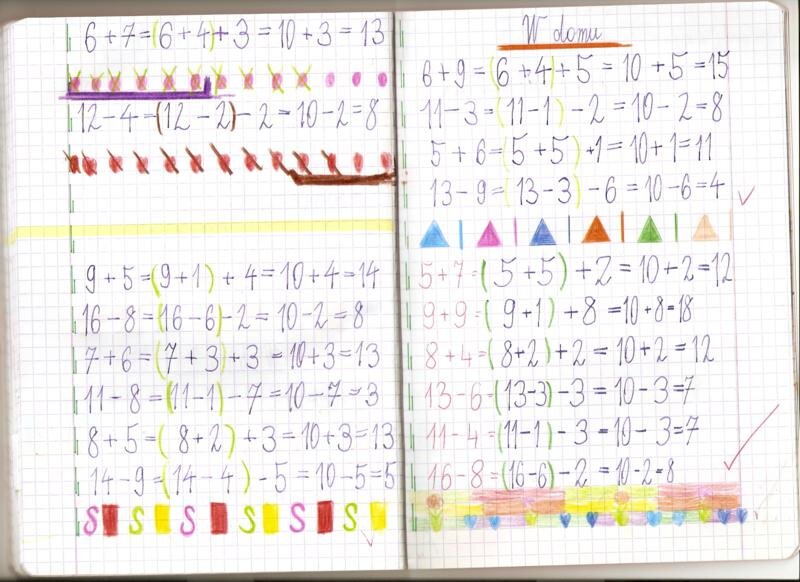 6+7=(6+4)+3=10+3=13
12-4=(12-2)-2=10-2=8
9+5=(9+1)+4=10+4=14
16-8=(16-6)-2=10-2=8
7+6=(7+3)+3=10+3=13
11-8=(11-1)-7=10-7=3
8+5=(8+2)+3=10+3=13
14-9=(14-4)-5=10-5=5
S S S S S S
W domu
6+9=(6+4)+5=10+5=15
11-3=(11-1)-2=10-2=8
5+6=(5+5)+1=10+1=11
13-9=(13-3)-6=10-6=4
5+7=(5+5)+2=10+2=12
9+9=(9+1)+8=10+8=18
8+4=(8+2)+2=10+2=12
13-6=(13-3)-3=10-3=7
11-4=(11-1)-3=10-3=7
16-8=(16-6)-2=10-2=8